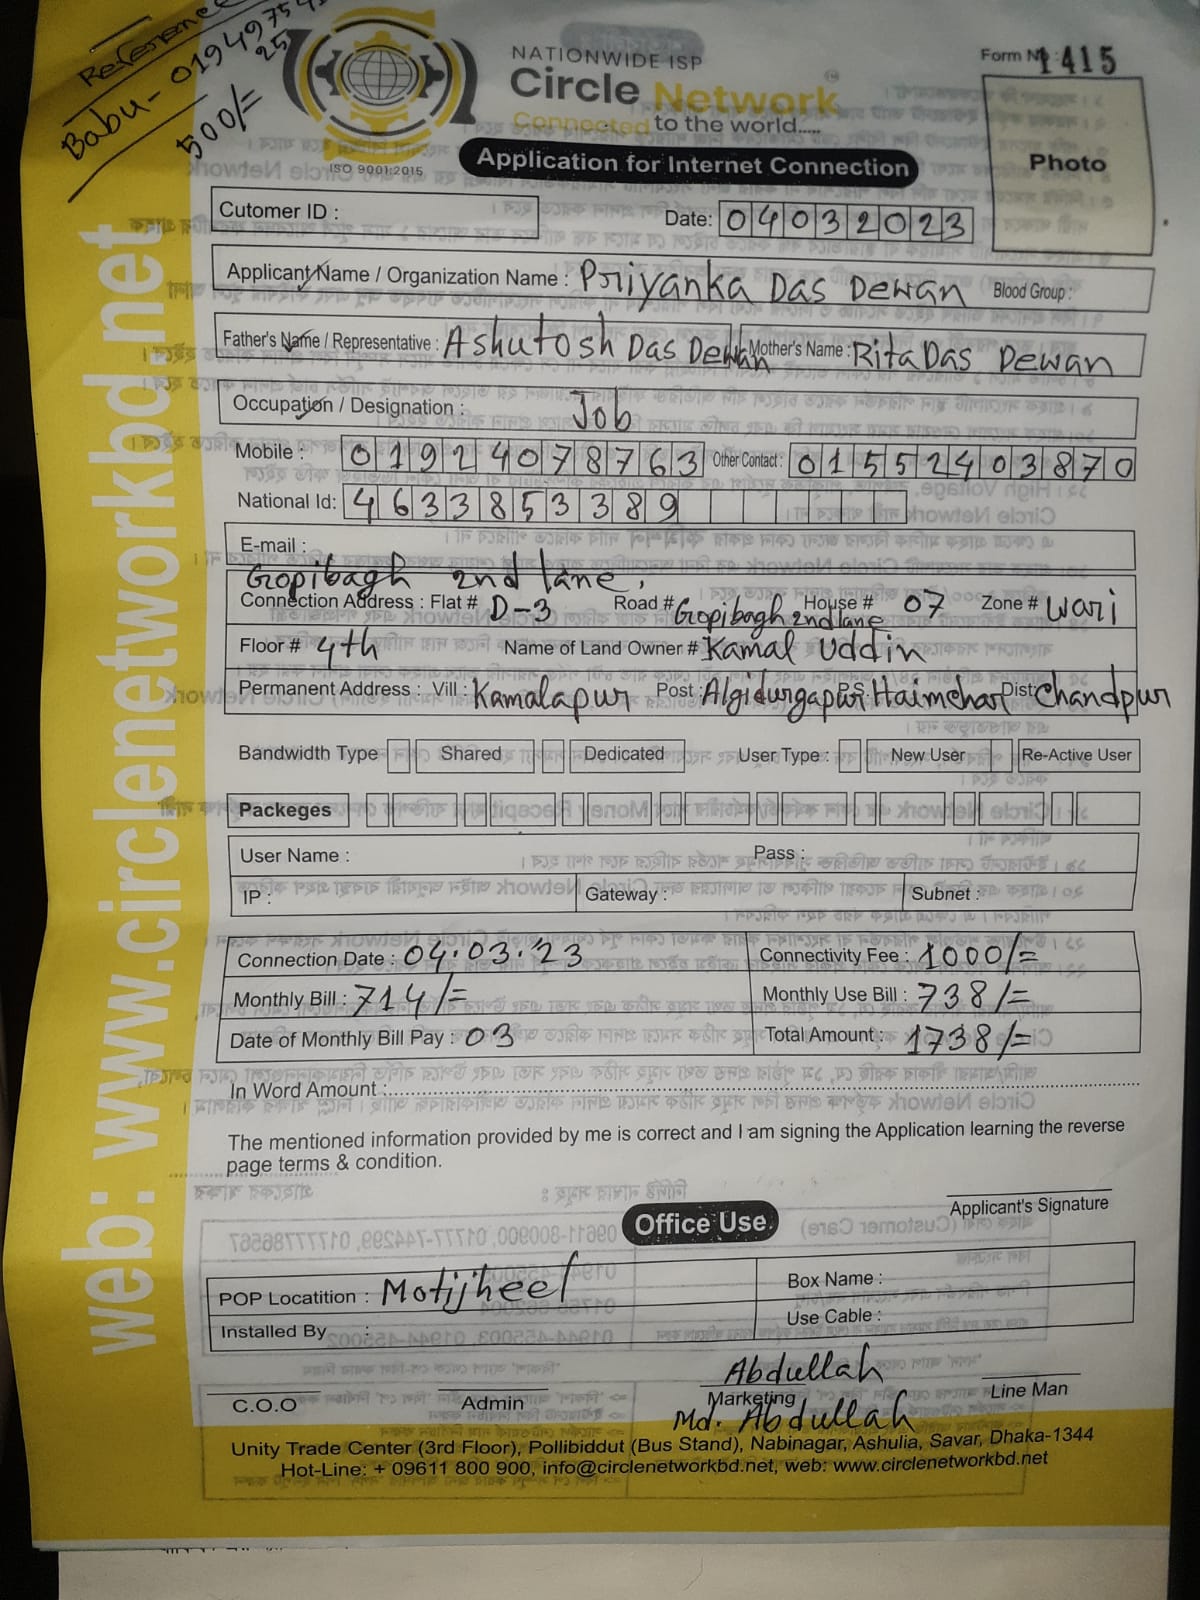 Reference
Babu- 01949754
25
500/=
NATIONWIDE ISP
Circle Network
Connected to the world.....
ISO 9001:2015
Form No: 1415
Photo
Application for Internet Connection
Cutomer ID :
Date: 04032023
Applicant Name / Organization Name : Priyanka Das Dewan Blood Group :
Father's Name / Representative : Ashutosh Das Dewan Mother's Name : Rita Das Dewan
Occupation / Designation : Job
Mobile : 01924078763 Other Contact : 01552403870
National Id: 4633853389
E-mail :
Gopibagh 2nd lane,
Connection Address : Flat # D-3 Road # Gopibagh 2nd lane House # 07 Zone # Wari
Floor # 4th Name of Land Owner # Kamal Uddin
Permanent Address : Vill : Kamalapur Post : Algidurgapur P.S: Haimchar Dist: Chandpur
Bandwidth Type Shared Dedicated User Type : New User Re-Active User
Packeges
User Name : Pass :
IP : Gateway : Subnet :
Connection Date : 04.03.'23 Connectivity Fee : 1000/=
Monthly Bill : 714/= Monthly Use Bill : 738/=
Date of Monthly Bill Pay : 03 Total Amount : 1738/=
In Word Amount :
The mentioned information provided by me is correct and I am signing the Application learning the reverse
page terms & condition.
Applicant's Signature
Office Use.
POP Locatition : Motijheel Box Name :
Installed By : Use Cable :
Abdullah
C.O.O Admin Marketing Line Man
Md. Abdullah
Unity Trade Center (3rd Floor), Pollibiddut (Bus Stand), Nabinagar, Ashulia, Savar, Dhaka-1344
Hot-Line: + 09611 800 900, info@circlenetworkbd.net, web: www.circlenetworkbd.net
web: www.circlenetworkbd.net